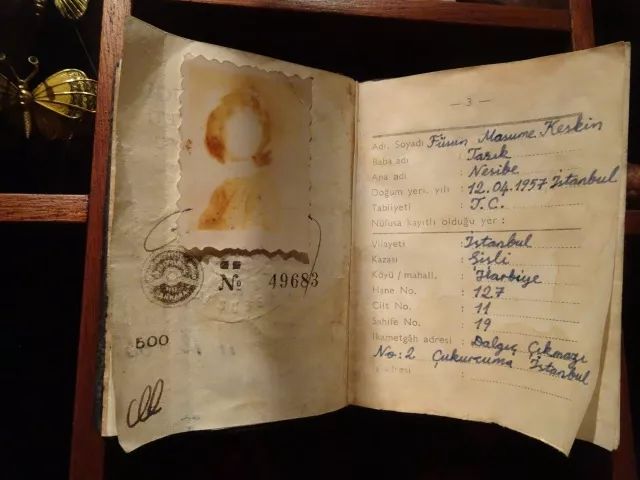 Nº 49683
500
— 3 —
Adı, Soyadı Füsun Masume Keskin
Baba adı : Tarık
Ana adı : Nesibe
Doğum yeri, yılı : 12.04.1957 İstanbul
Tabiiyeti : T.C.
Nüfusa kayıtlı olduğu yer :
Vilayeti : İstanbul
Kazası : Şişli
Köyü / mahall. : Harbiye
Hane No. : 127
Cilt No. : 11
Sahife No. : 19
İkametgâh adresi : Dalgıç Çıkmazı
No: 2 Çukurcuma İstanbul
adresi :